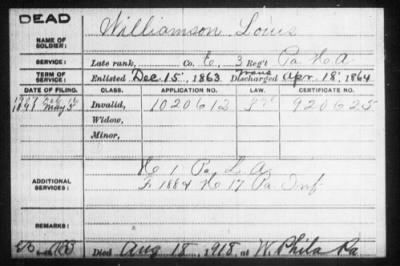 DEAD
NAME OF SOLDIER: Williamson, Louis
SERVICE: Late rank, Co. E, 3 Reg't Pa. H. A.
TERM OF SERVICE: Enlisted Dec. 15, 1863 Trans Discharged Apr. 18, 1864
DATE OF FILING. CLASS. APPLICATION NO. LAW. CERTIFICATE NO.
1891 May Invalid, 1020612 920625
Widow,
Minor,
ADDITIONAL SERVICES: 1 Pa. L. A.
17 Pa Inf
REMARKS:
Died Aug 18, 1918, at W. Phila Pa